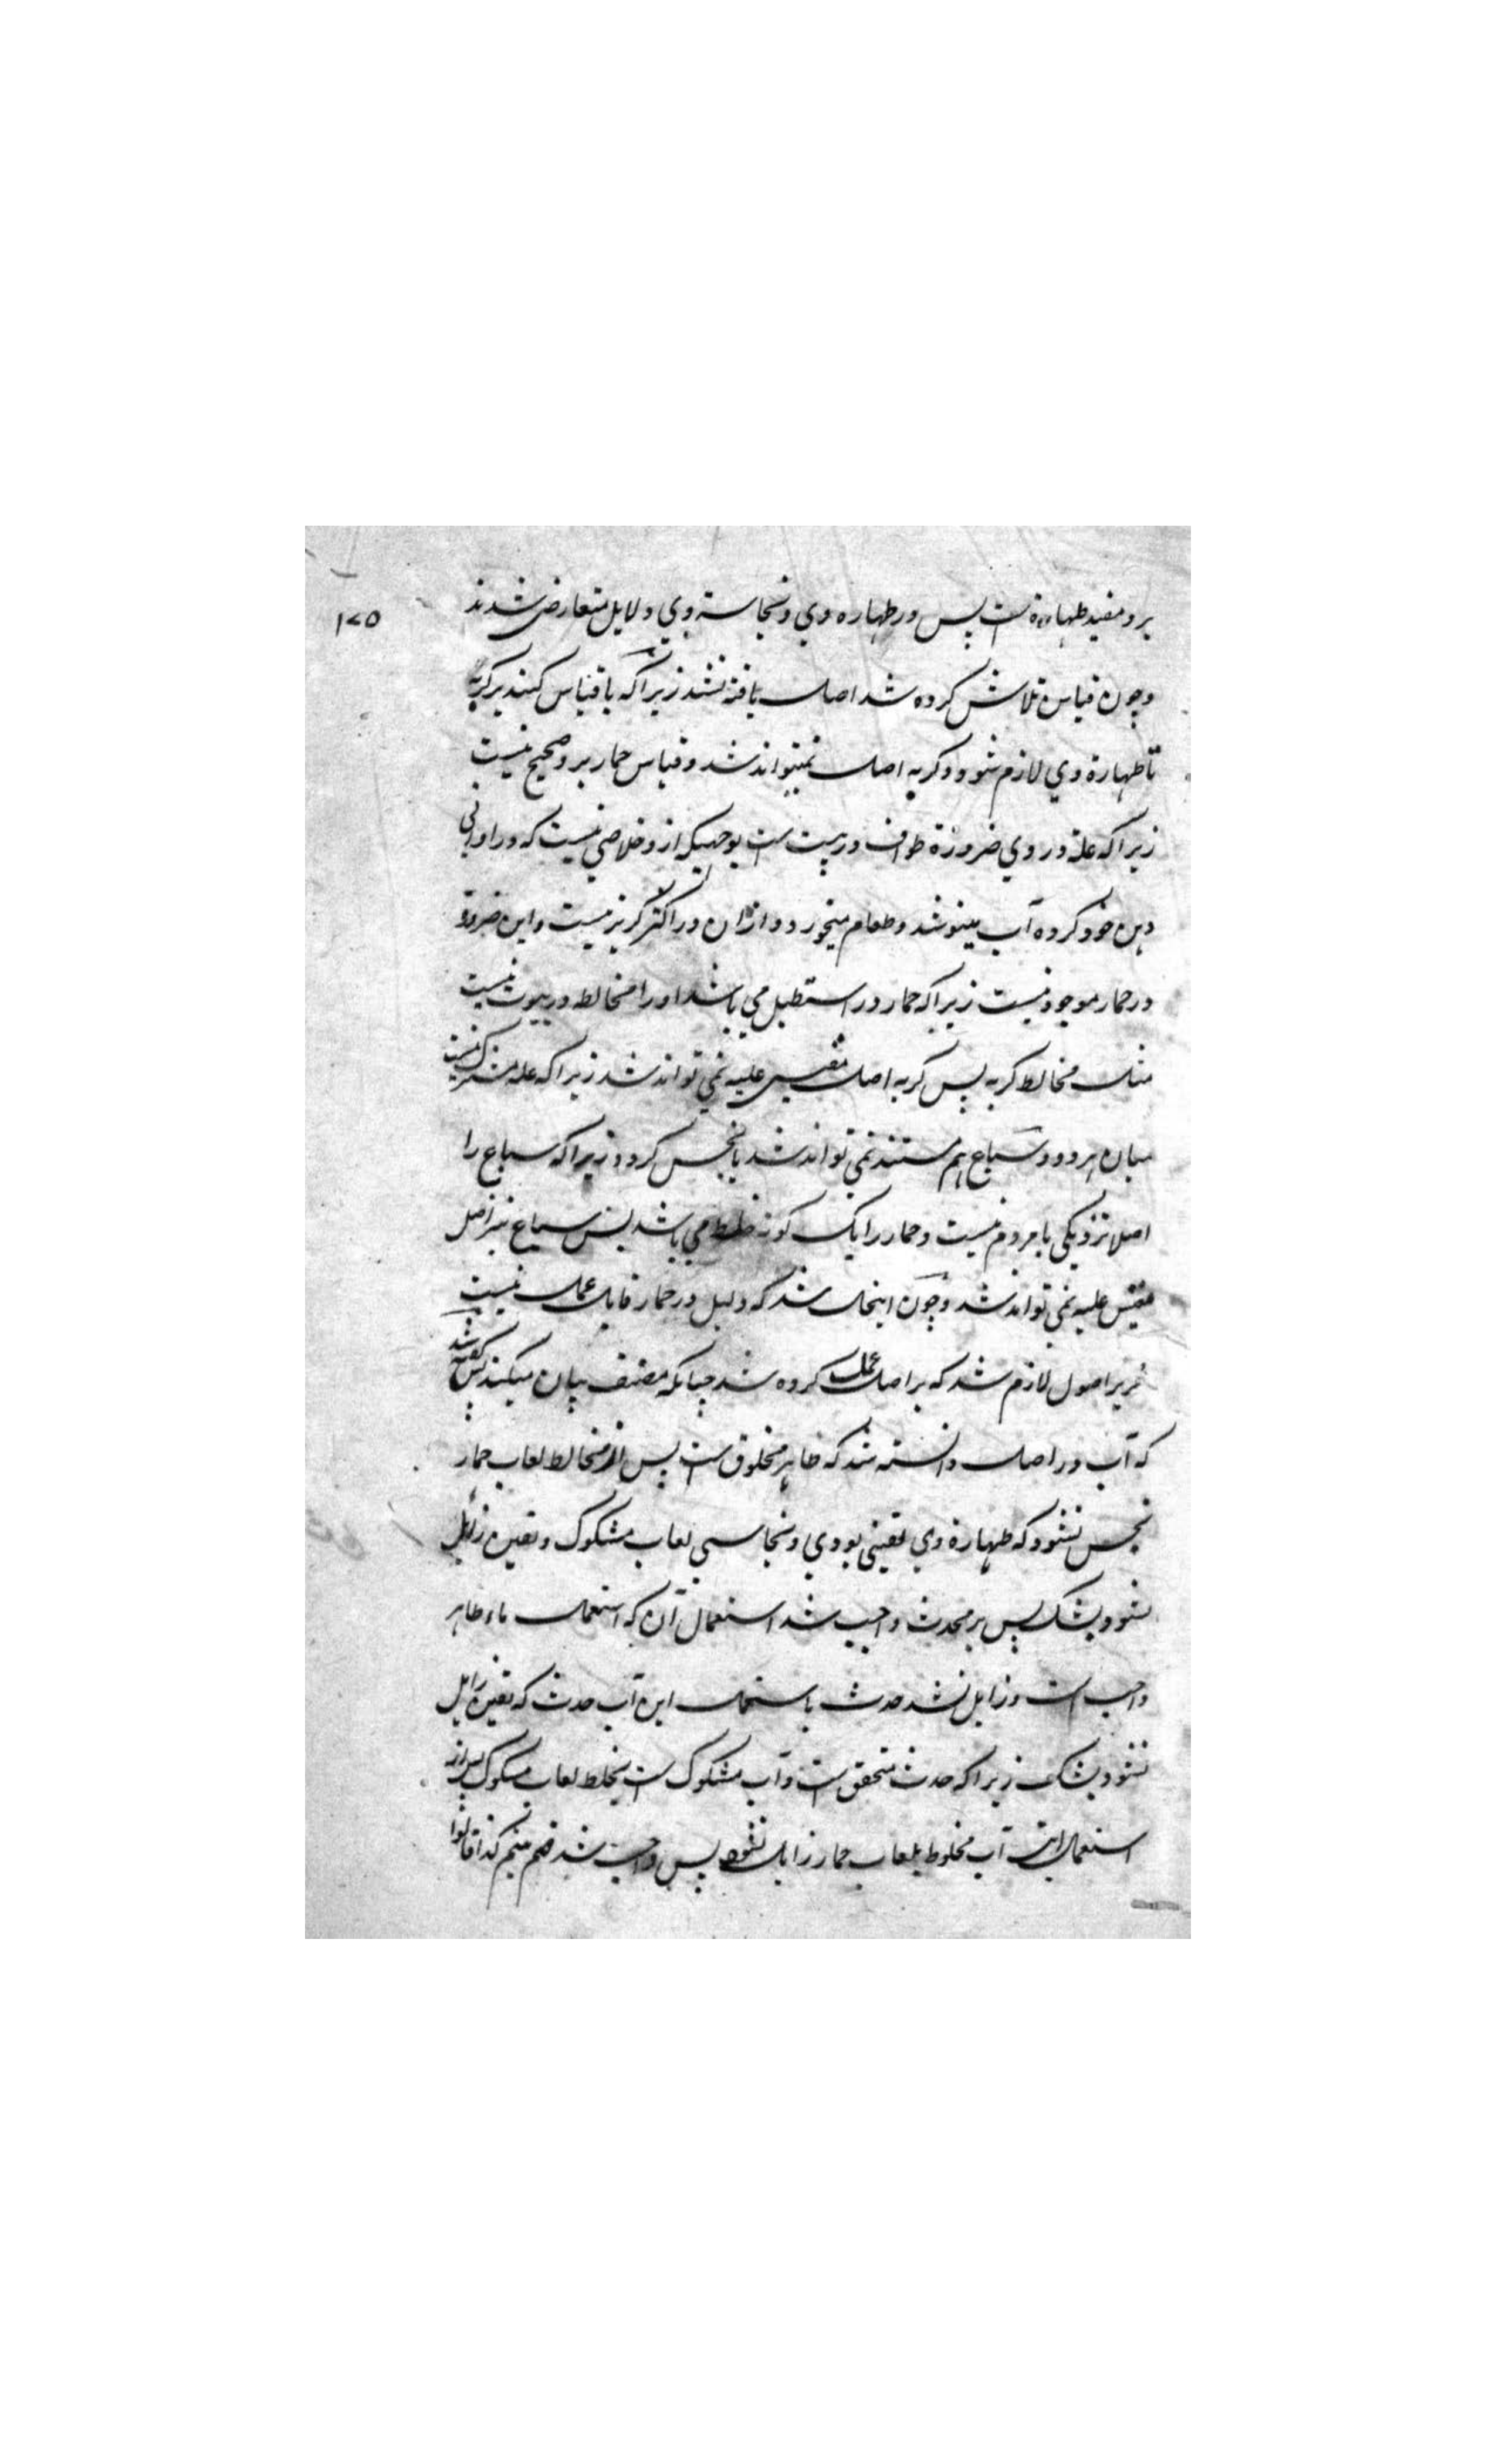 ۱۷۵
بر و مفید طهارة است پس در طهاره وي و نجاسة وي دلایل متعارض شدند
و چون قیاس تلاش کرده شد اصل یافته نشد زیرا که یا قیاس کنند بر گربه
تا طهارة وي لازم شود و گربه اصل نمیتواند شد و قیاس حمار بر و صحیح نیست
زیرا که علة در وي ضرورة طواف در بیت است بوجهیکه ازو خلاصي نیست که در اواني
دهن خود کرده آب مینوشد و طعام میخورد و ازان در اکثر گریز نیست و این ضرورة
در حمار موجود نیست زیرا که حمار در استطبل می باشد او را مخالط در بیوت نیست
مثل مخالط گربه پس گربه اصل مقیس علیه نمي تواند شد زیرا که علة مشترک نیست
میان هر دو و سباع هم مستند نمي تواند شد تا نجس گردد زیرا که سباع را
اصلا نزدیکي با مردم نیست و حمار را یک گونه خلط مي باشد پس سباع نیز اصل
مقیس علیه نمي تواند شد و چون اینحال شد که دلیل در حمار قابل عمل نیست
تقریر اصول لازم شد که بر اصل عمل کرده شد چنانکه مصنف بیان میکند پس گفته شد
که آب در اصل دانسته شد که طاهر مخلوق است پس از مخالط لعاب حمار
نجس نشود که طهارة وي یقیني بودي و نجاستي لعاب مشکوک و یقین زایل
نشود بشک پس بر محدث واجب شد استعمال آن که استعمال ماء طاهر
واجب است و زایل نشد حدث باستعمال این آب حدث که یقین زایل
نشود بشک زیرا که حدث متحقق است و آب مشکوک است بخلط لعاب مشکوک پس از
استعمال این آب مخلوط بلعاب حمار زایل نشود پس واجب شد ضم تیمم کذا قالوا